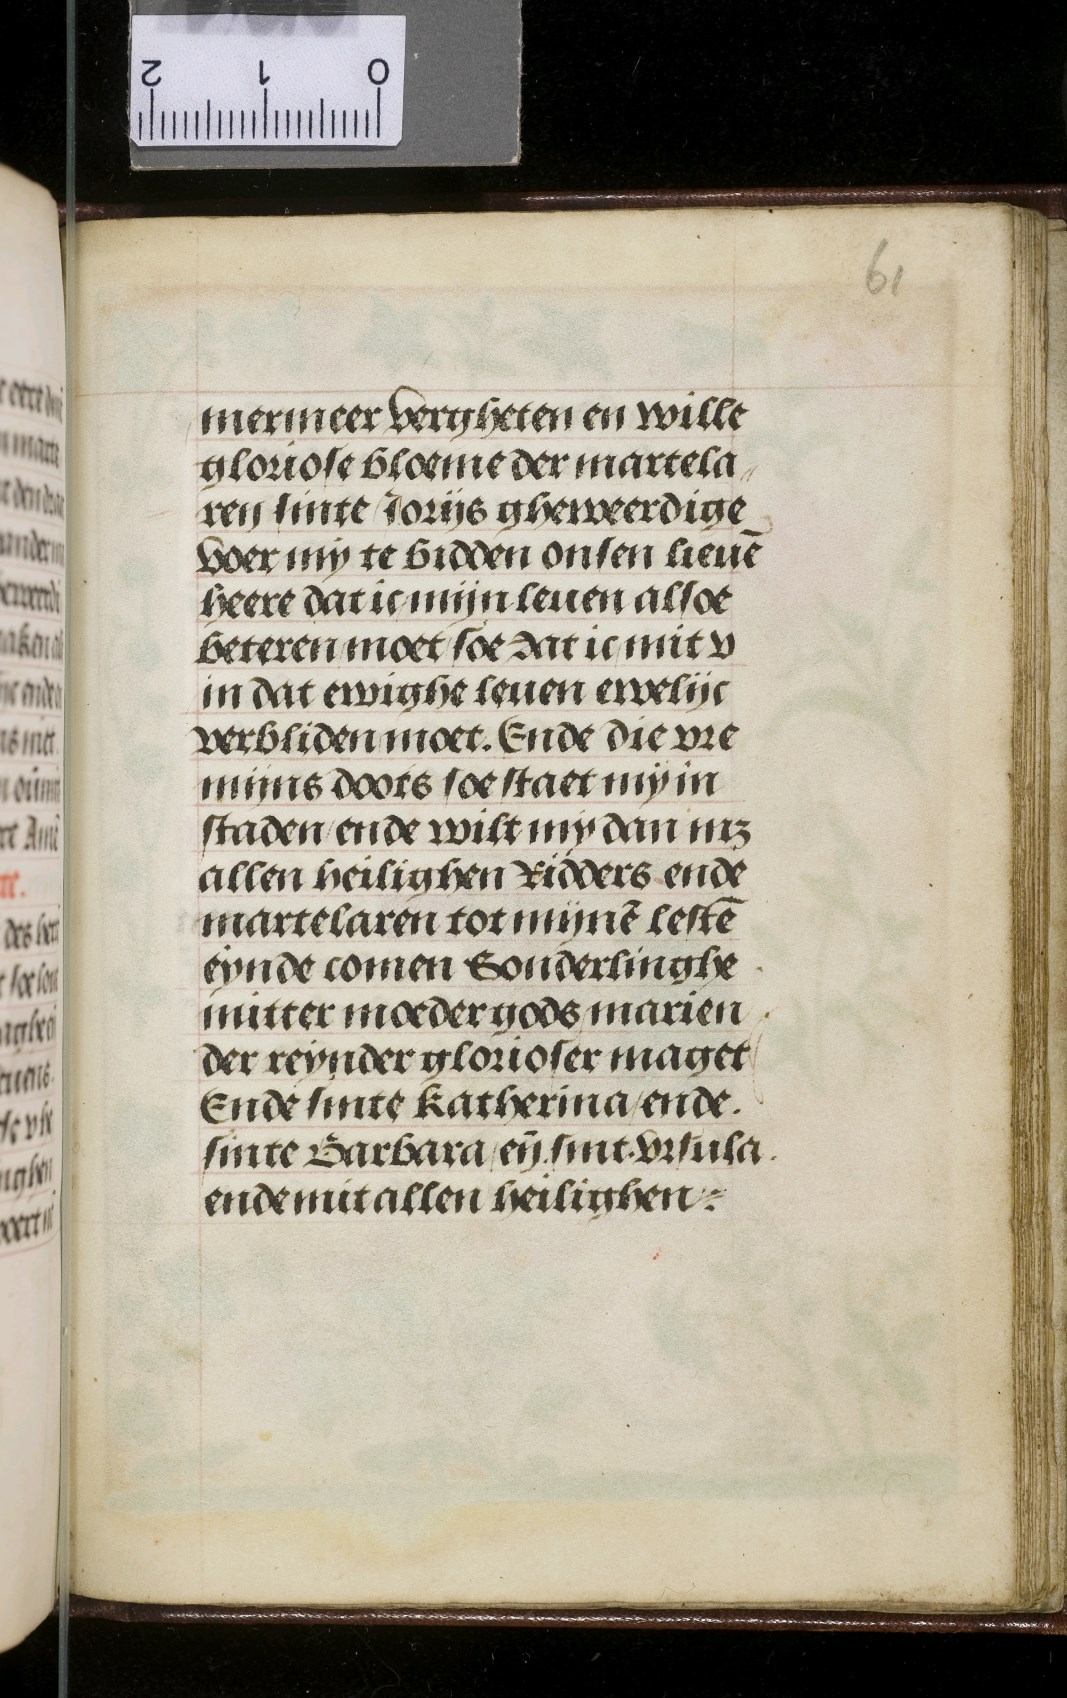 61
mermeer vergheten en wille
gloriose bloeme der martela〃
ren sinte Jorijs gheweerdige
voer my te bidden onsen lieuē
heere dat ic mijn leuen alsoe
beteren moet soe dat ic mit v
in dat ewighe leuen ewelijc
verbliden moet. Ende die vre
mijns doots soe staet my in
staden ende wilt my dan mz
allen heilighen Ridders ende
martelaren tot mijnē lestē
eynde comen Sonderlinghe
mitter moeder gods marien
der reynder glorioser maget
Ende sinte Katherina ende.
sinte Barbara eñ sint vrsula.
ende mit allen heilighen